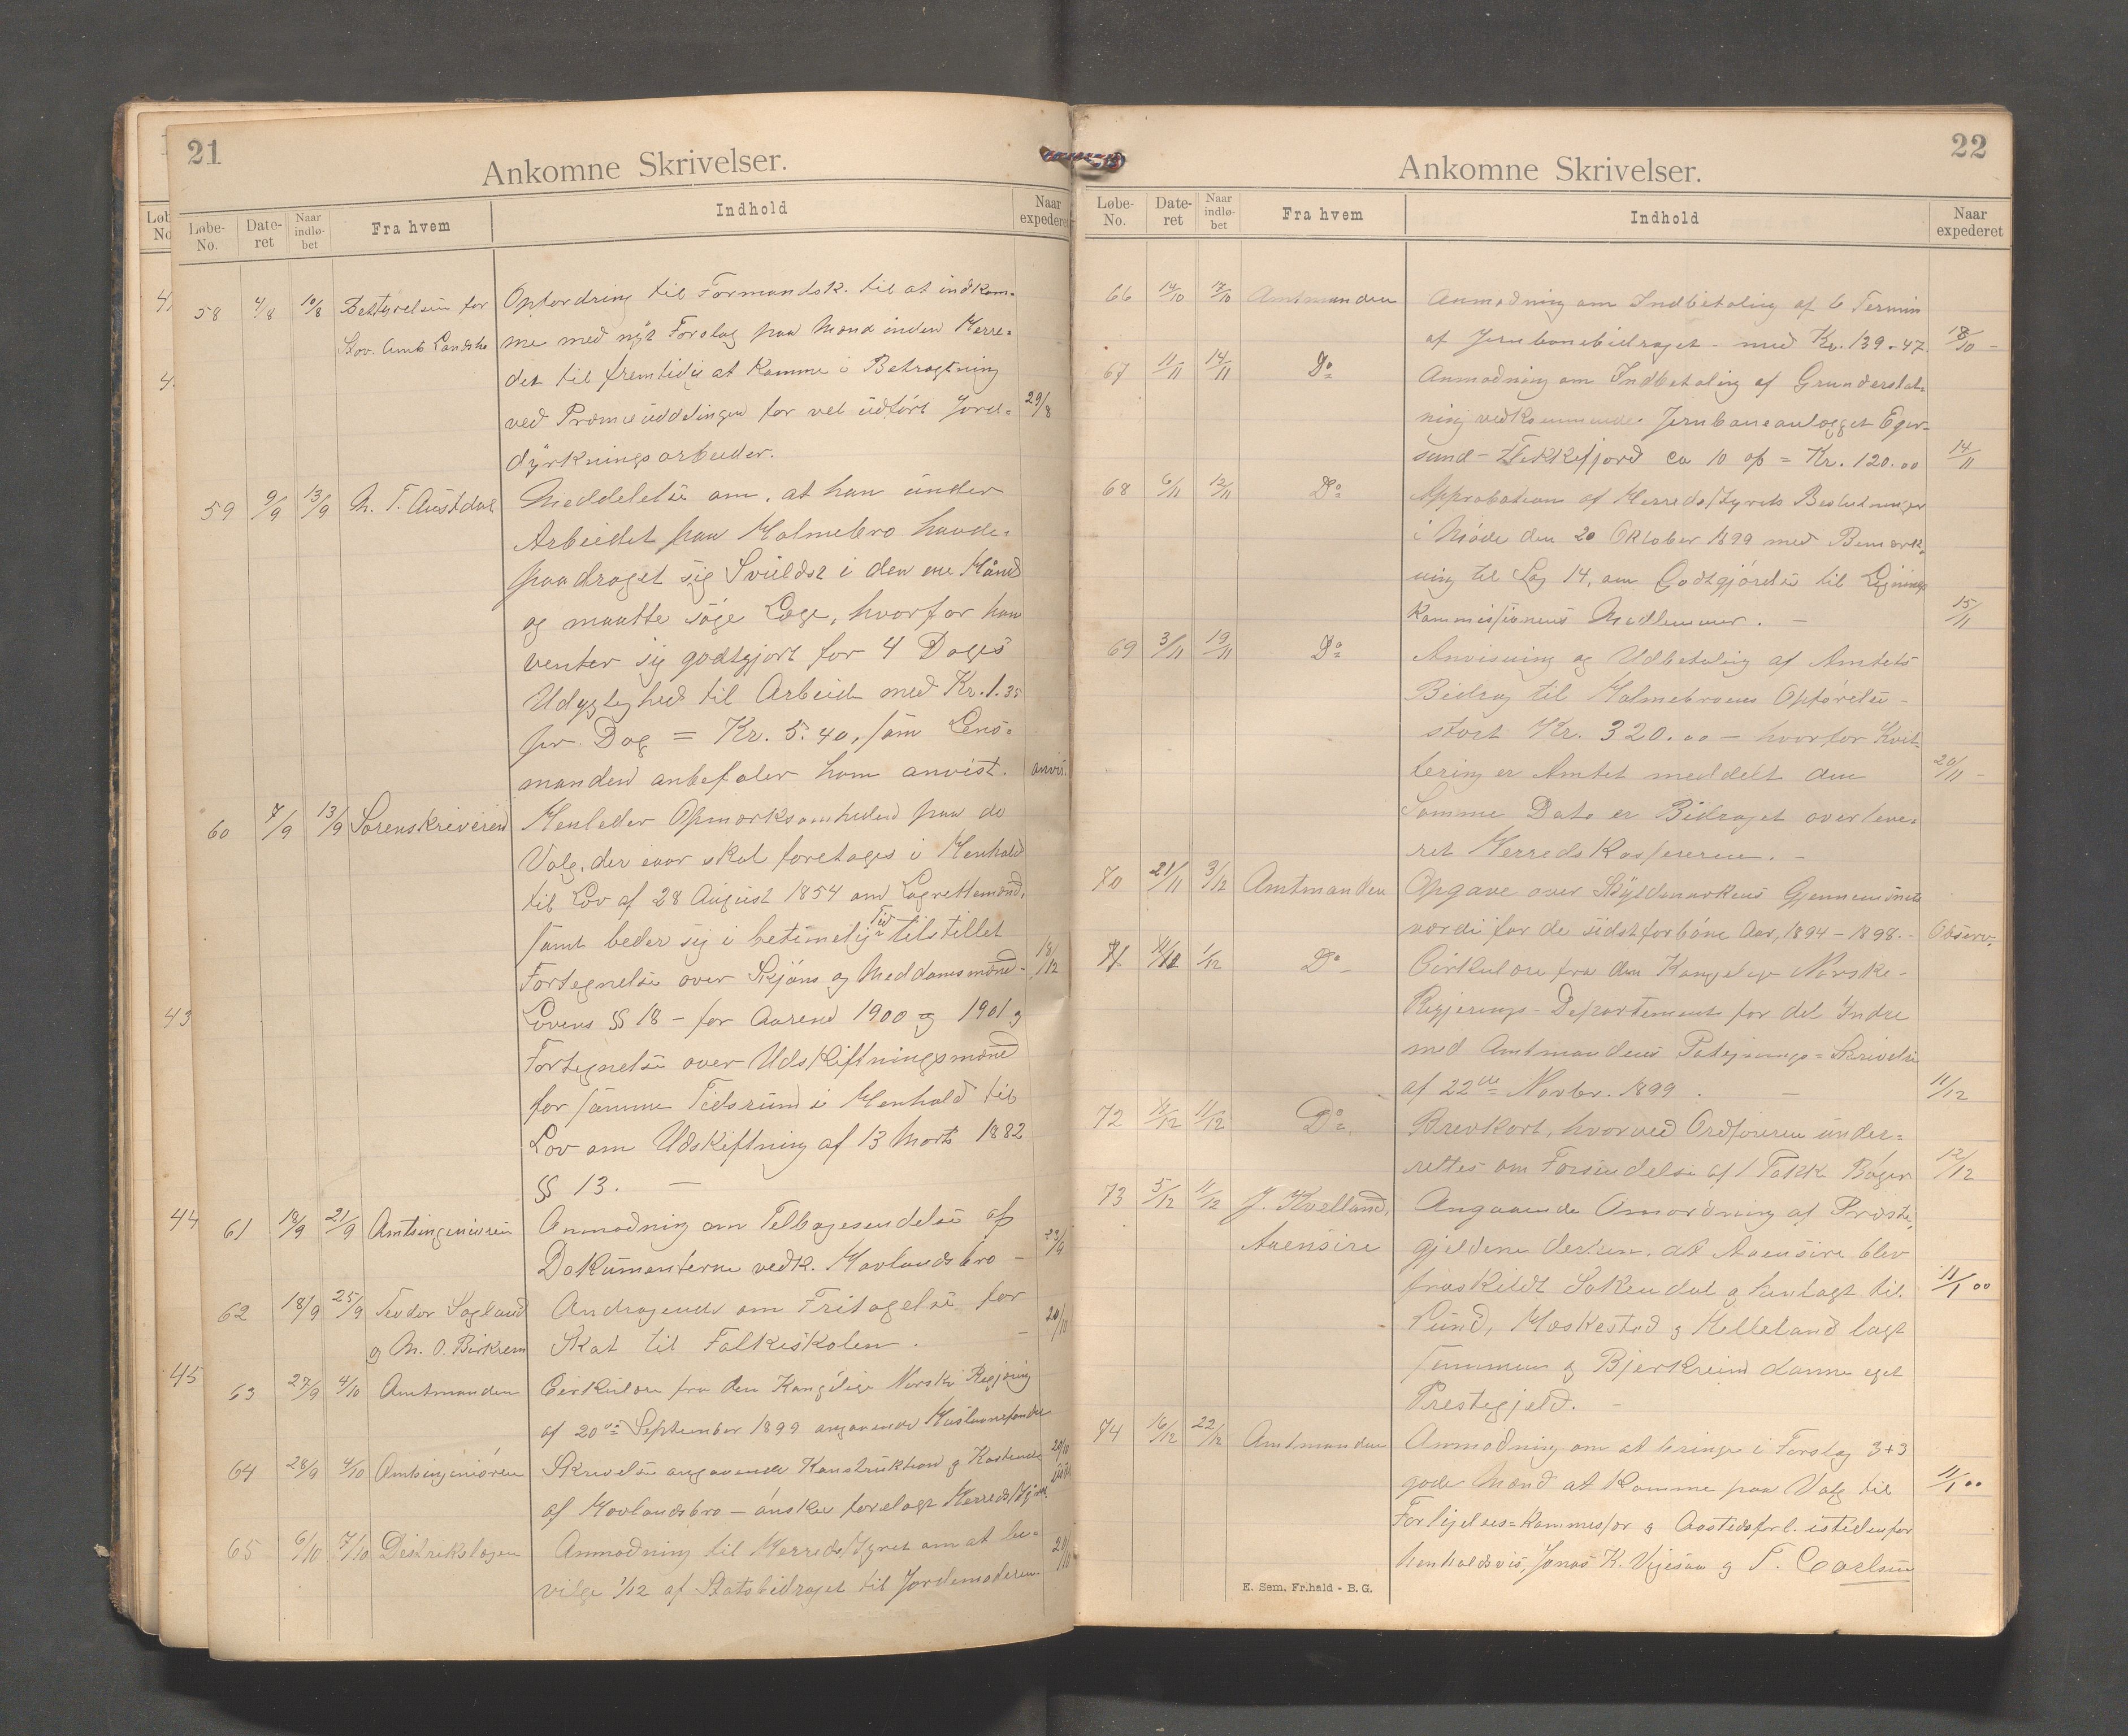 21
Ankomne Skrivelser.
Løbe-No. Date-ret Naar indlø-bet Fra hvem Indhold Naar expederet
58 4/8 10/8 Bestyrelsen for Opfordring til Formandsk. til at indkom-
Stav. Amts Landsho me med nyt Forslag paa Mænd inden Herre-
det til fremtidig at komme i Betragtning
ved Præmieuddelingen for vel udført Jord- 29/8
dyrkningsarbeider.
59 9/9 13/9 M. T. Austdal Meddelelse om, at han under
Arbeidet paa Malmebro havde
paadraget sig Svuldst i den ene Haand
og maatte søge Læge, hvorfor han
venter sig godtgjort for 4 Dages
Udygtighed til Arbeide med Kr. 1.35
pr. Dag = Kr. 5.40, som Lens-
manden anbefaler ham anvist. anvis.
60 7/9 13/9 Sorenskriveren Henleder Opmærksomheden paa de
Valg, der iaar skal foretages i Henhold
til Lov af 28 August 1854 om Lagrettemænd,
samt beder sig i betimelig Tid tilstillet
Fortegnelse over Skjøns og Meddomsmænd- 18/12
Lovens § 18 - for Aarene 1900 og 1901 og
Fortegnelse over Udskiftningsmænd
for samme Tidsrum i Henhold til
Lov om Udskiftning af 13 Marts 1882
§ 13. —
61 18/9 21/9 Amtsingeniøren Anmodning om Tilbagesendelse af
Dokumenterne vedk. Havlandsbro - 23/9
62 18/9 25/9 Teodor Sagland Andragende om Fritagelse for
og M. O. Birkrem Skat til Folkeskolen. - 20/10
63 27/9 4/10 Amtmanden Cirkulære fra den Kongelige Norske Regjering
af 20de September 1899 angaaende
64 28/9 4/10 Amtsingeniøren Skrivelse angaaende Konstruktion og Kostende 20/10
af Havlandsbro - ønskes forelagt Herredsstyret.
65 6/10 7/10 Distriktslægen Anmodning til Herredsstyret om at be-
vilge 1/12 af Statsbidraget til Jordemoderen
43
44
45
22
Ankomne Skrivelser.
Løbe-No. Date-ret Naar indlø-bet Fra hvem Indhold Naar expederet
66 14/10 17/10 Amtmanden Anmodning om Indbetaling af 6 Termin
af Jernbanebidraget - med Kr. 139.47 18/10 -
67 11/11 14/11 Do Anmodning om Indbetaling af Grunderstat-
ning vedkommende Jernbaneanlægget Eger-
sund - Flekkefjord ca 10 af = Kr. 120.00 14/11
68 6/11 12/11 Do Approbation af Herredsstyrets Beslutninger
i Møde den 20 Oktober 1899 med Bemærk-
ning til Sag 14, om Godtgjørelse til Lignings
kommissionens Medlemmer. - 15/11
69 3/11 19/11 Do Anvisning og Udbetaling af Amtets
Bidrag til Malmebroens Opførelse -
stort Kr. 320.00 - hvorfor Kvit-
tering er Amtet meddelt den 20/11 -
Samme Dato er Bidraget overleve-
ret Herredskassereren. -
70 21/11 3/12 Amtmanden Opgave over Skyldmarkens Gjennemsnits
værdi for de sidst forløbne Aar, 1894 - 1898. - Observ.
71. 1/12 Do Cirkulære fra den Kongelige Norske
Regjerings - Departement for det Indre
med Amtmandens Paategnings = Skrivelse
af 22de Novbr. 1899. - 11/12
72 11/12 11/12 Do Brevkort, hvorved Ordføreren under-
rettes om Forsendelse af 1 Pakke Bøger 12/12
73 5/12 11/12 J. Kvelland, Angaaende Omordning af Præste-
Aaensire gjeldene derhen, at Aaensire blev
fraskildt Sokendal og henlagt til 11/1 00
Lund, Heskestad og Helleland lagt
sammen og Bjerkreim danne eget
Prestegjeld. -
74 16/12 22/12 Amtmanden Anmodning om at bringe i Forslag 3+3
gode Mænd at komme paa Valg til 11/1 00
Forligelses = Kommissær og istedenfor
henholdsvis, Jonas K. Vigesaa og T. Carlsen
E. Sem, Fr.hald - B. G.